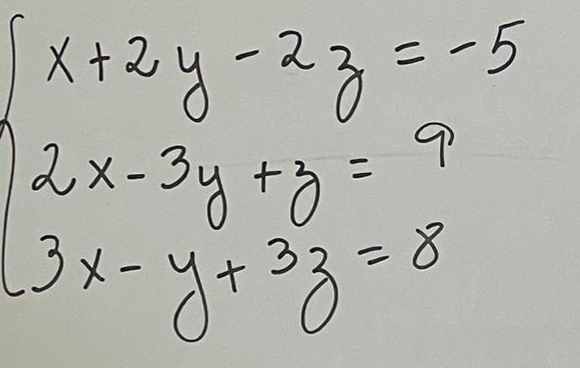 x+2y-2z=-5
2x-3y+z=9
3x-y+3z=8